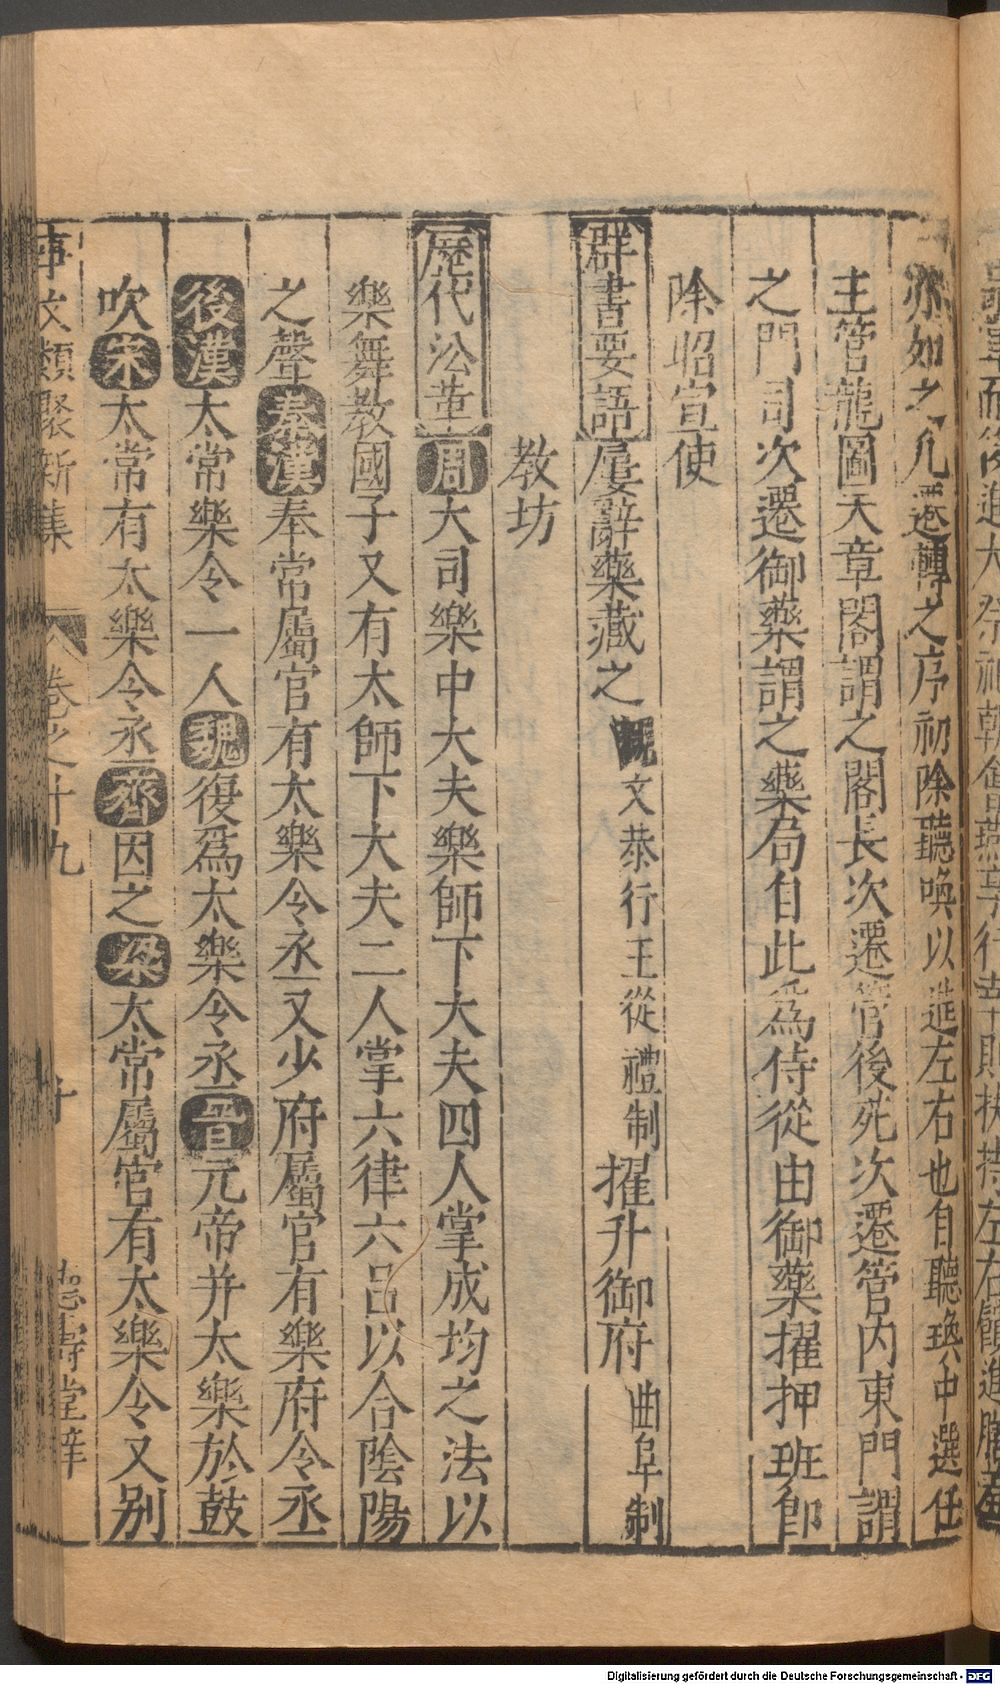 亦如之凡遷轉之序初除聽喚以進左右也自聽喚中選任
主管龍圖天章閣謂之閣長次遷管後苑次遷管内東門謂
之門司次遷御藥謂之藥局自此爲侍從由御藥擢押班即
除昭宣使
群書要語屢辭藥藏之 文恭行王從禮制擢升御府曲阜制
教坊
歷代沿革周大司樂中大夫樂師下大夫四人掌成均之法以
樂舞教國子又有太師下大夫二人掌六律六吕以合陰陽
之聲秦漢奉常屬官有太樂令丞又少府屬官有樂府令丞
後漢太常樂令一人魏復爲太樂令丞晋元帝并太樂於鼓
吹宋太常有太樂令丞齊因之梁太常屬官有太樂令又别
事文類聚新集 卷之十九 十 壽堂梓
Digitalisierung gefördert durch die Deutsche Forschungsgemeinschaft - DFG